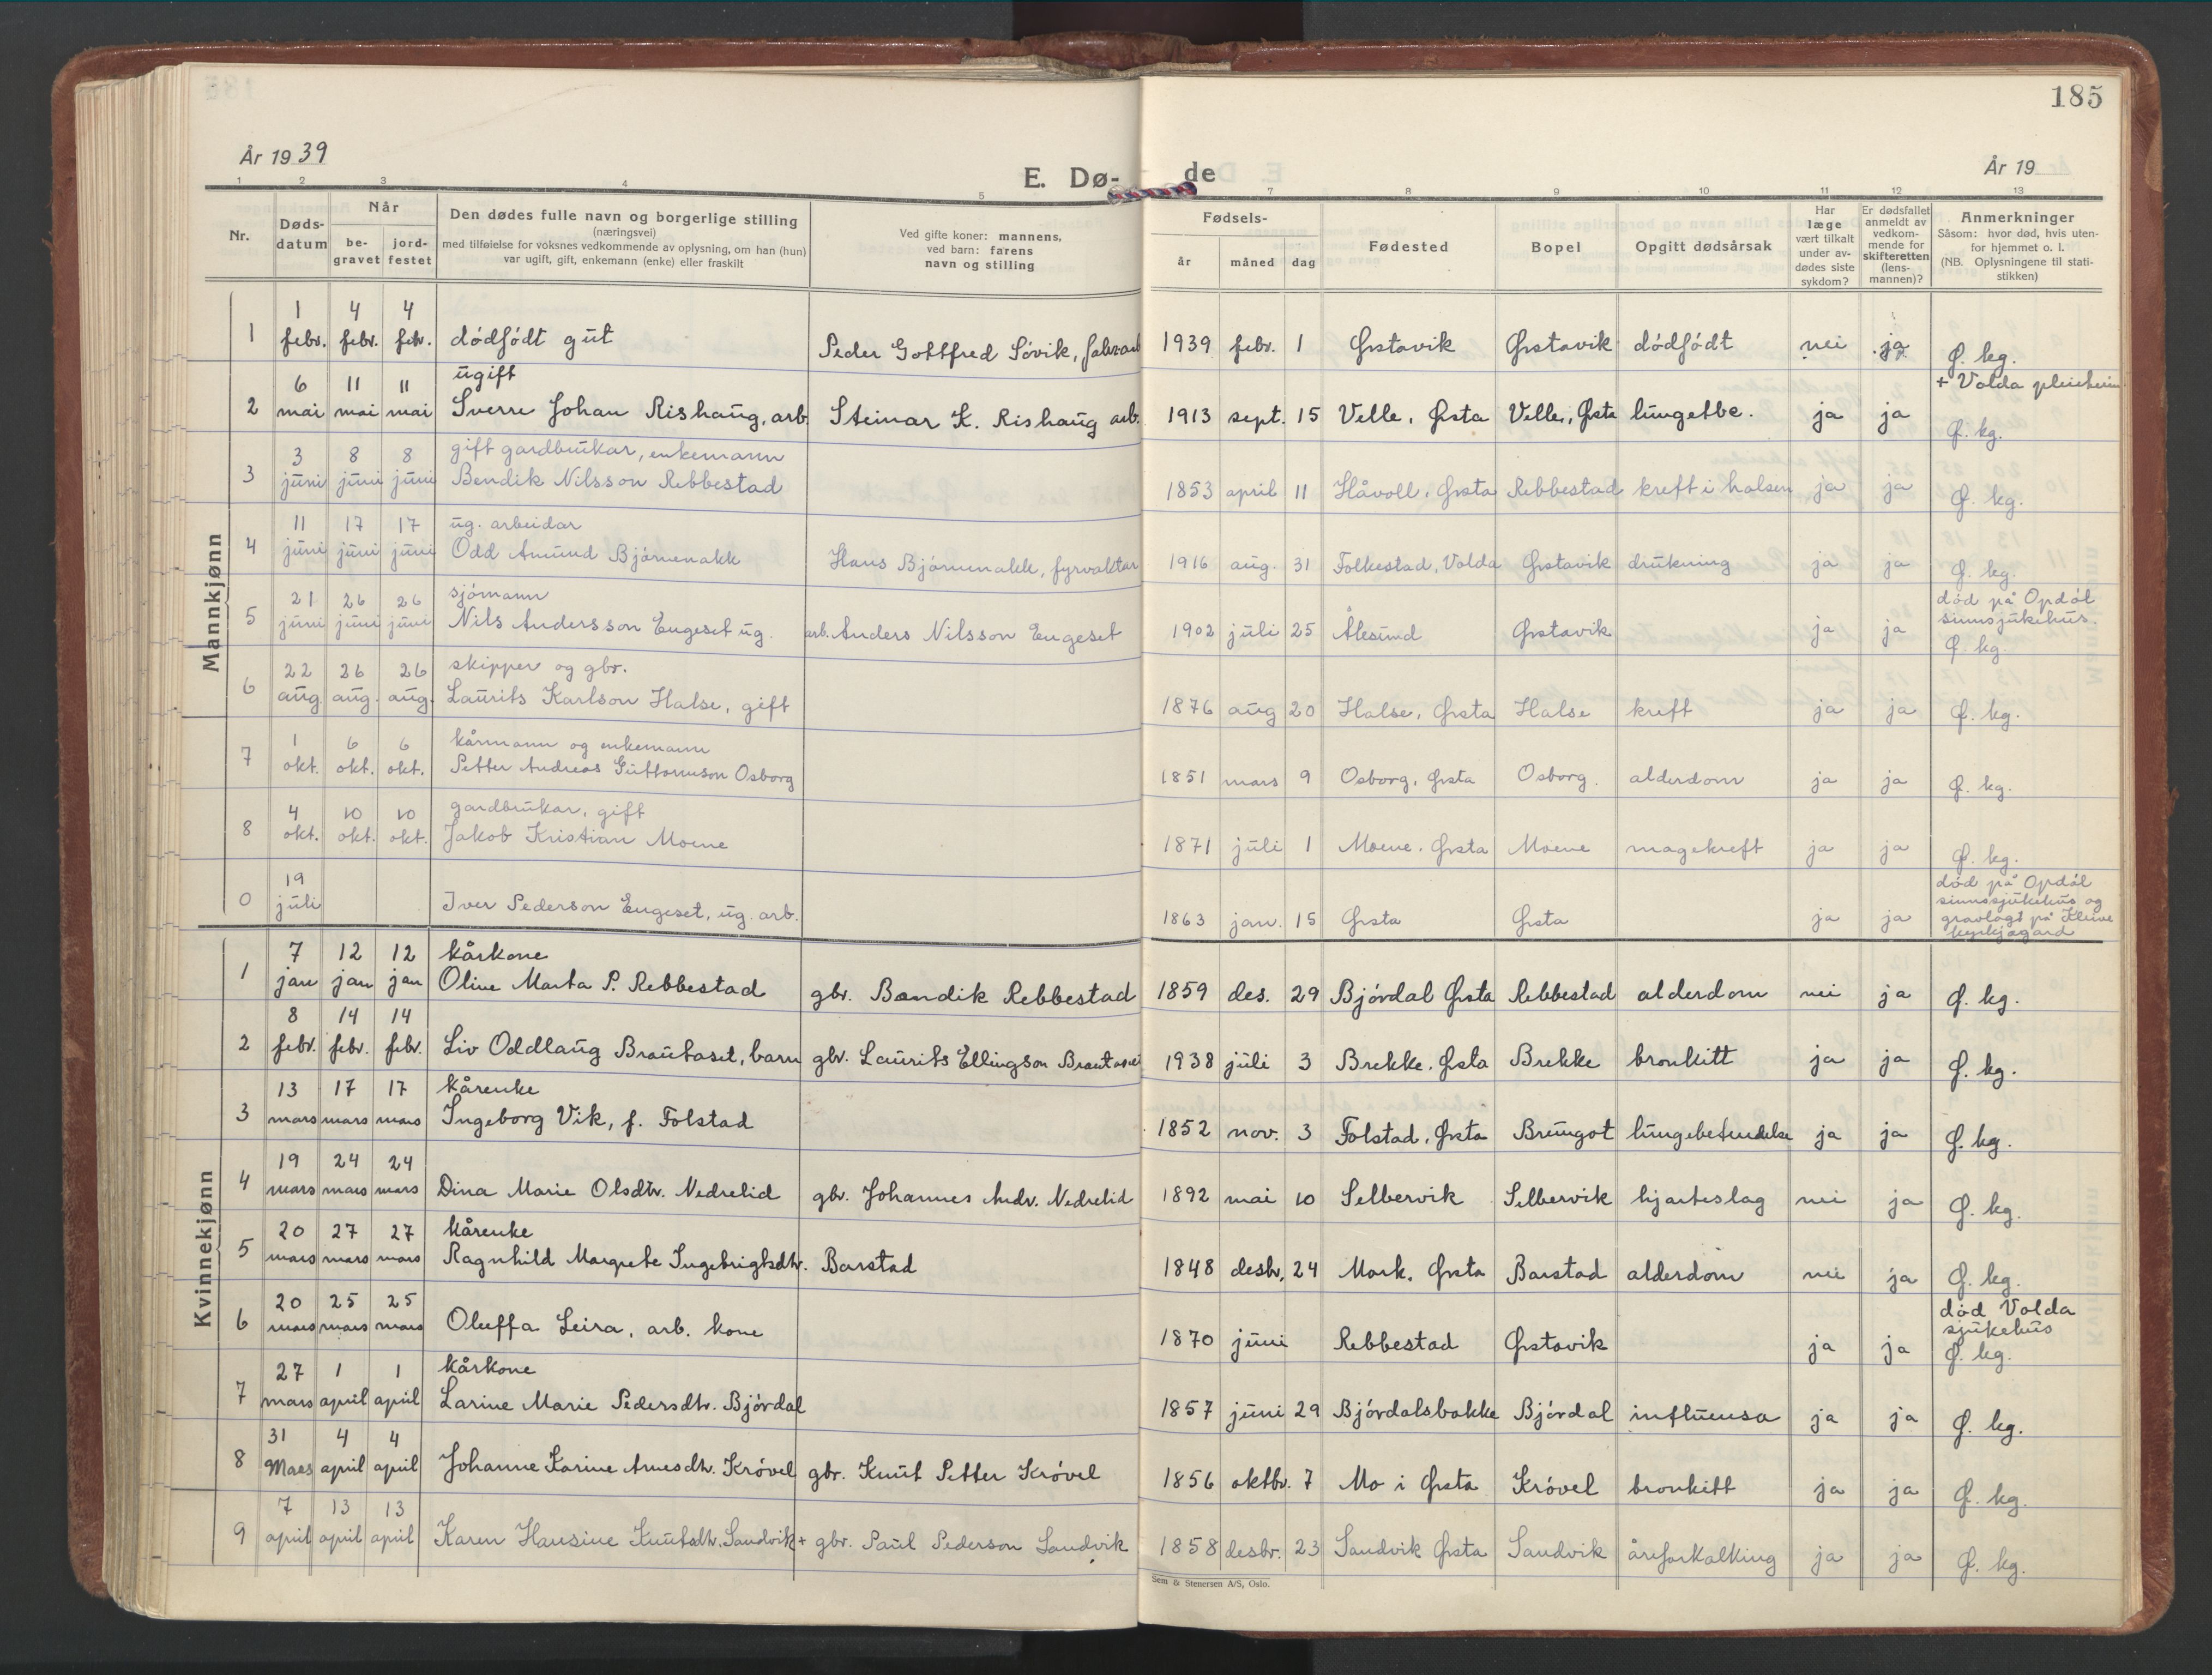 185
År 1939
E. Dø-
de
År 19
1 2 3 4 5 7 8 9 10 11 12 13
Nr.
Døds-
datum
Når
be-
gravet
jord-
festet
Den dødes fulle navn og borgerlige stilling
(næringsvei)
med tilføielse for voksnes vedkommende av oplysning, om han (hun)
var ugift, gift, enkemann (enke) eller fraskilt
Ved gifte koner: mannens,
ved barn: farens
navn og stilling
Fødsels-
år måned dag
Fødested
Bopel
Opgitt dødsårsak
Har
læge
vært tilkalt
under av-
dødes siste
sykdom?
Er dødsfallet
anmeldt av
vedkom-
mende for
skifteretten
(lens-
mannen)?
Anmerkninger
Såsom: hvor død, hvis uten-
for hjemmet o. l.
(NB. Oplysningene til stati-
stikken)
Mannkjønn
1 4 4
1 febr. febr. febr. dódfódt gut Peder Gottfred Sóvik, 1939 febr. 1 Ørstavik Ørstavik dódfódt nei ja Ø. kg.
6 11 11 ugift + Volda pleieheim
2 mai mai mai Sverre Johan Rishaug, arb. Steinar K. Rishaug arb. 1913 sept. 15 Velle, Ørsta Velle, Ørsta lungetbc. ja ja Ø. kg.
3 8 8 gift gardbrukar, enkemann
3 juni juni juni Bendik Nilsson Rebbestad 1853 april 11 Håvoll, Ørsta Rebbestad kreft i halsen ja ja Ø. kg.
11 17 17 ug. arbeidar
4 juni juni juni Odd Amund Bjórnenakk Hans Bjórnenakk, fyrvaktar 1916 aug. 31 Folkestad, Volda Ørstavik drukning ja ja Ø. kg.
21 26 26 sjómann dód på Opdól
5 juni juni juni Nils Andersson Engeset ug. arb. Anders Nilsson Engeset 1902 juli 25 Ålesund Ørstavik ja ja sinnsjukehus.
Ø kg.
22 26 26 skipper og gbr.
6 aug. aug. aug. Laurits Karlson Halse, gift 1876 aug 20 Halse, Ørsta Halse kreft ja ja Ø. kg.
1 6 6 kårmann og enkemann
7 okt. okt. okt. Petter Andreas Guttormson Osborg 1851 mars 9 Osborg, Ørsta Osborg. alderdom ja ja Ø. kg.
4 10 10 gardbrukar, gift
8 okt. okt. okt. Jakob Kristian Moene 1871 juli 1 Moene, Ørsta Moene magekreft ja ja Ø. kg.
19 dód på Opdól
0 juli Iver Pederson Engeset, ug. arb. 1863 jan. 15 Ørsta Ørsta ja ja sinnssjukehus og
gravlagt på Kleive
kyrkjegard
Kvinnekjønn
7 12 12 kårkone
1 jan jan jan Oline Marta P. Rebbestad gbr. Bendik Rebbestad 1859 des. 29 Bjórdal Ørsta Rebbestad alderdom nei ja Ø. kg.
8 14 14
2 febr. febr. febr. Liv Oddlaug Brautaset, barn gbr. Laurits Ellingson Brautaset 1938 juli 3 Brekke, Ørsta Brekke bronkitt ja ja Ø. kg.
13 17 17 kårenke
3 mars mars mars Ingeborg Vik, f. Folstad 1852 nov. 3 Folstad, Ørsta Brungot lungebetendelse ja ja Ø. kg.
19 24 24
4 mars mars mars Dina Marie Olsdtr. Nedrelid gbr. Johannes Andr. Nedrelid 1892 mai 10 Selbervik Selbervik hjarteslag nei ja Ø. kg.
20 27 27 kårenke
5 mars mars mars Ragnhild Margrete Ingebrigtsdtr. Barstad 1848 desbr. 24 Mork, Ørsta Barstad alderdom nei ja Ø. kg.
20 25 25 dód Volda
6 mars mars mars Oluffa Leira, arb. kone 1870 juni Rebbestad Ørstavik ja ja sjukehus
Ø. kg.
27 1 1 kårkone
7 mars april april Larine Marie Pedersdtr. Bjórdal 1857 juni 29 Bjórdalsbakke Bjórdal influensa ja ja Ø. kg.
31 4 4
8 Mars april april Johanne Karine Arnesdtr. Króvel gbr. Knut Petter Króvel 1856 oktbr. 7 Mo i Ørsta Króvel bronkitt ja ja Ø. kg.
7 13 13
9 april april april Karen Hansine Knutsdtr. Sandvik + gbr. Paul Pederson Sandvik 1858 desbr. 23 Sandvik Ørsta Sandvik åreforkalking ja ja Ø. kg.
Sem & Stenersen A/S, Oslo.